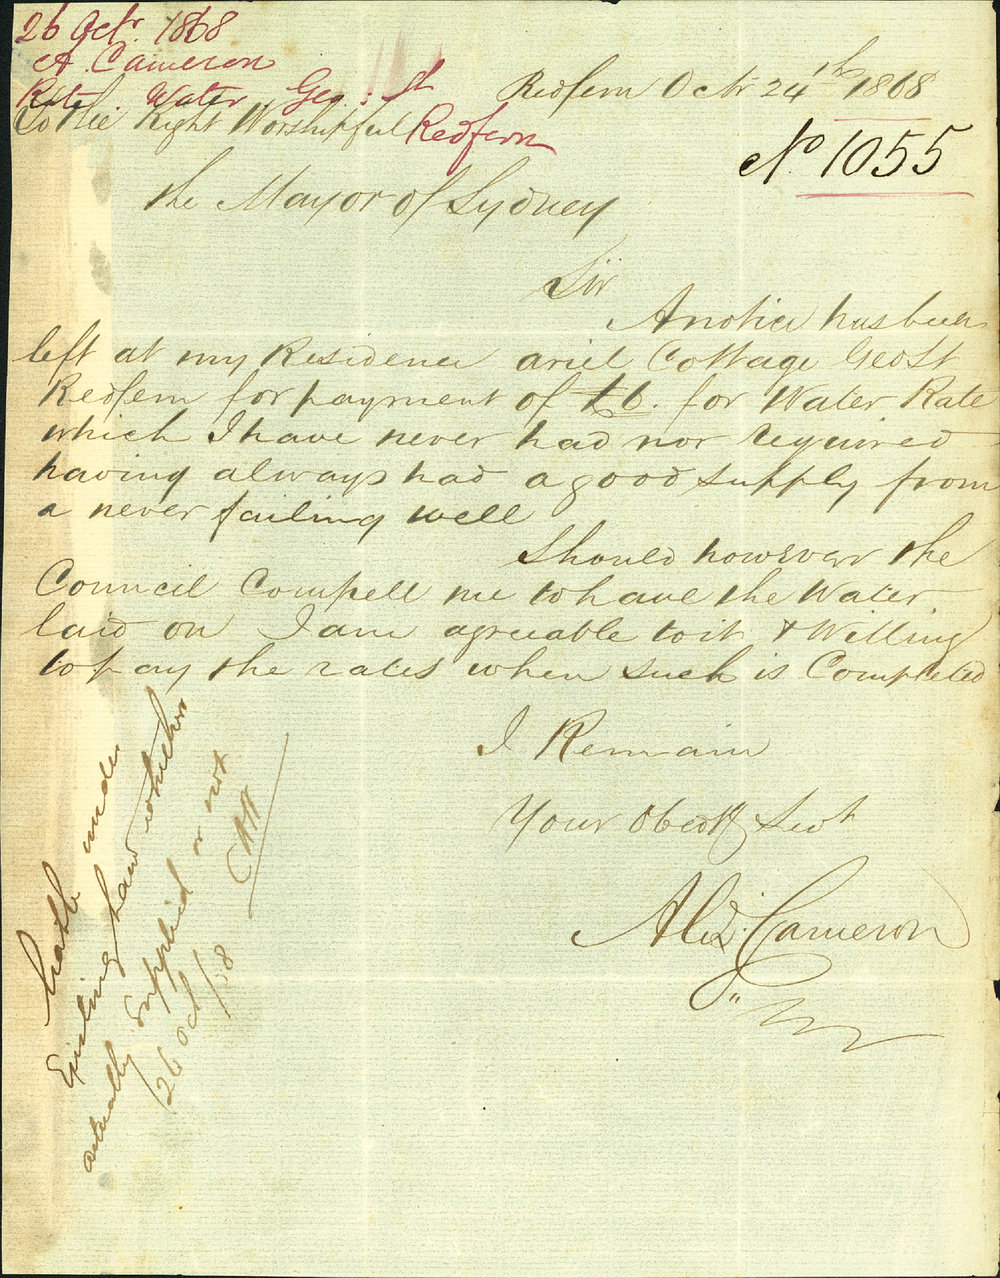 26 Octr. 1868
A. Cameron
Rate Water Geo: St
Redfern
Redfern Octr 24th 1868
No 1055
To the Right Worshipful
the Mayor of Sydney
Sir
A notice has been
left at my Residence ariel Cottage Geo St
Redfern for payment of £6. for Water Rate
which I have never had nor required
having always had a good supply from
a never failing well
Should however the
Council Compell me to have the Water
laid on I am agreeable to it & Willing
to pay the rates when such is Completed
I Remain
Your Obedt Servt
Alexr Cameron
liable under
Existing law whether
actually supplied or not
26 Oct/68